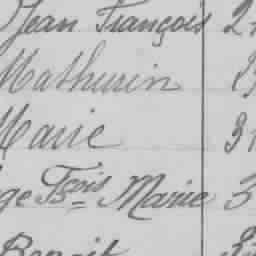 Jean François 2
Mathurin
Marie 3
ge Fçois Marie 3
Benoit